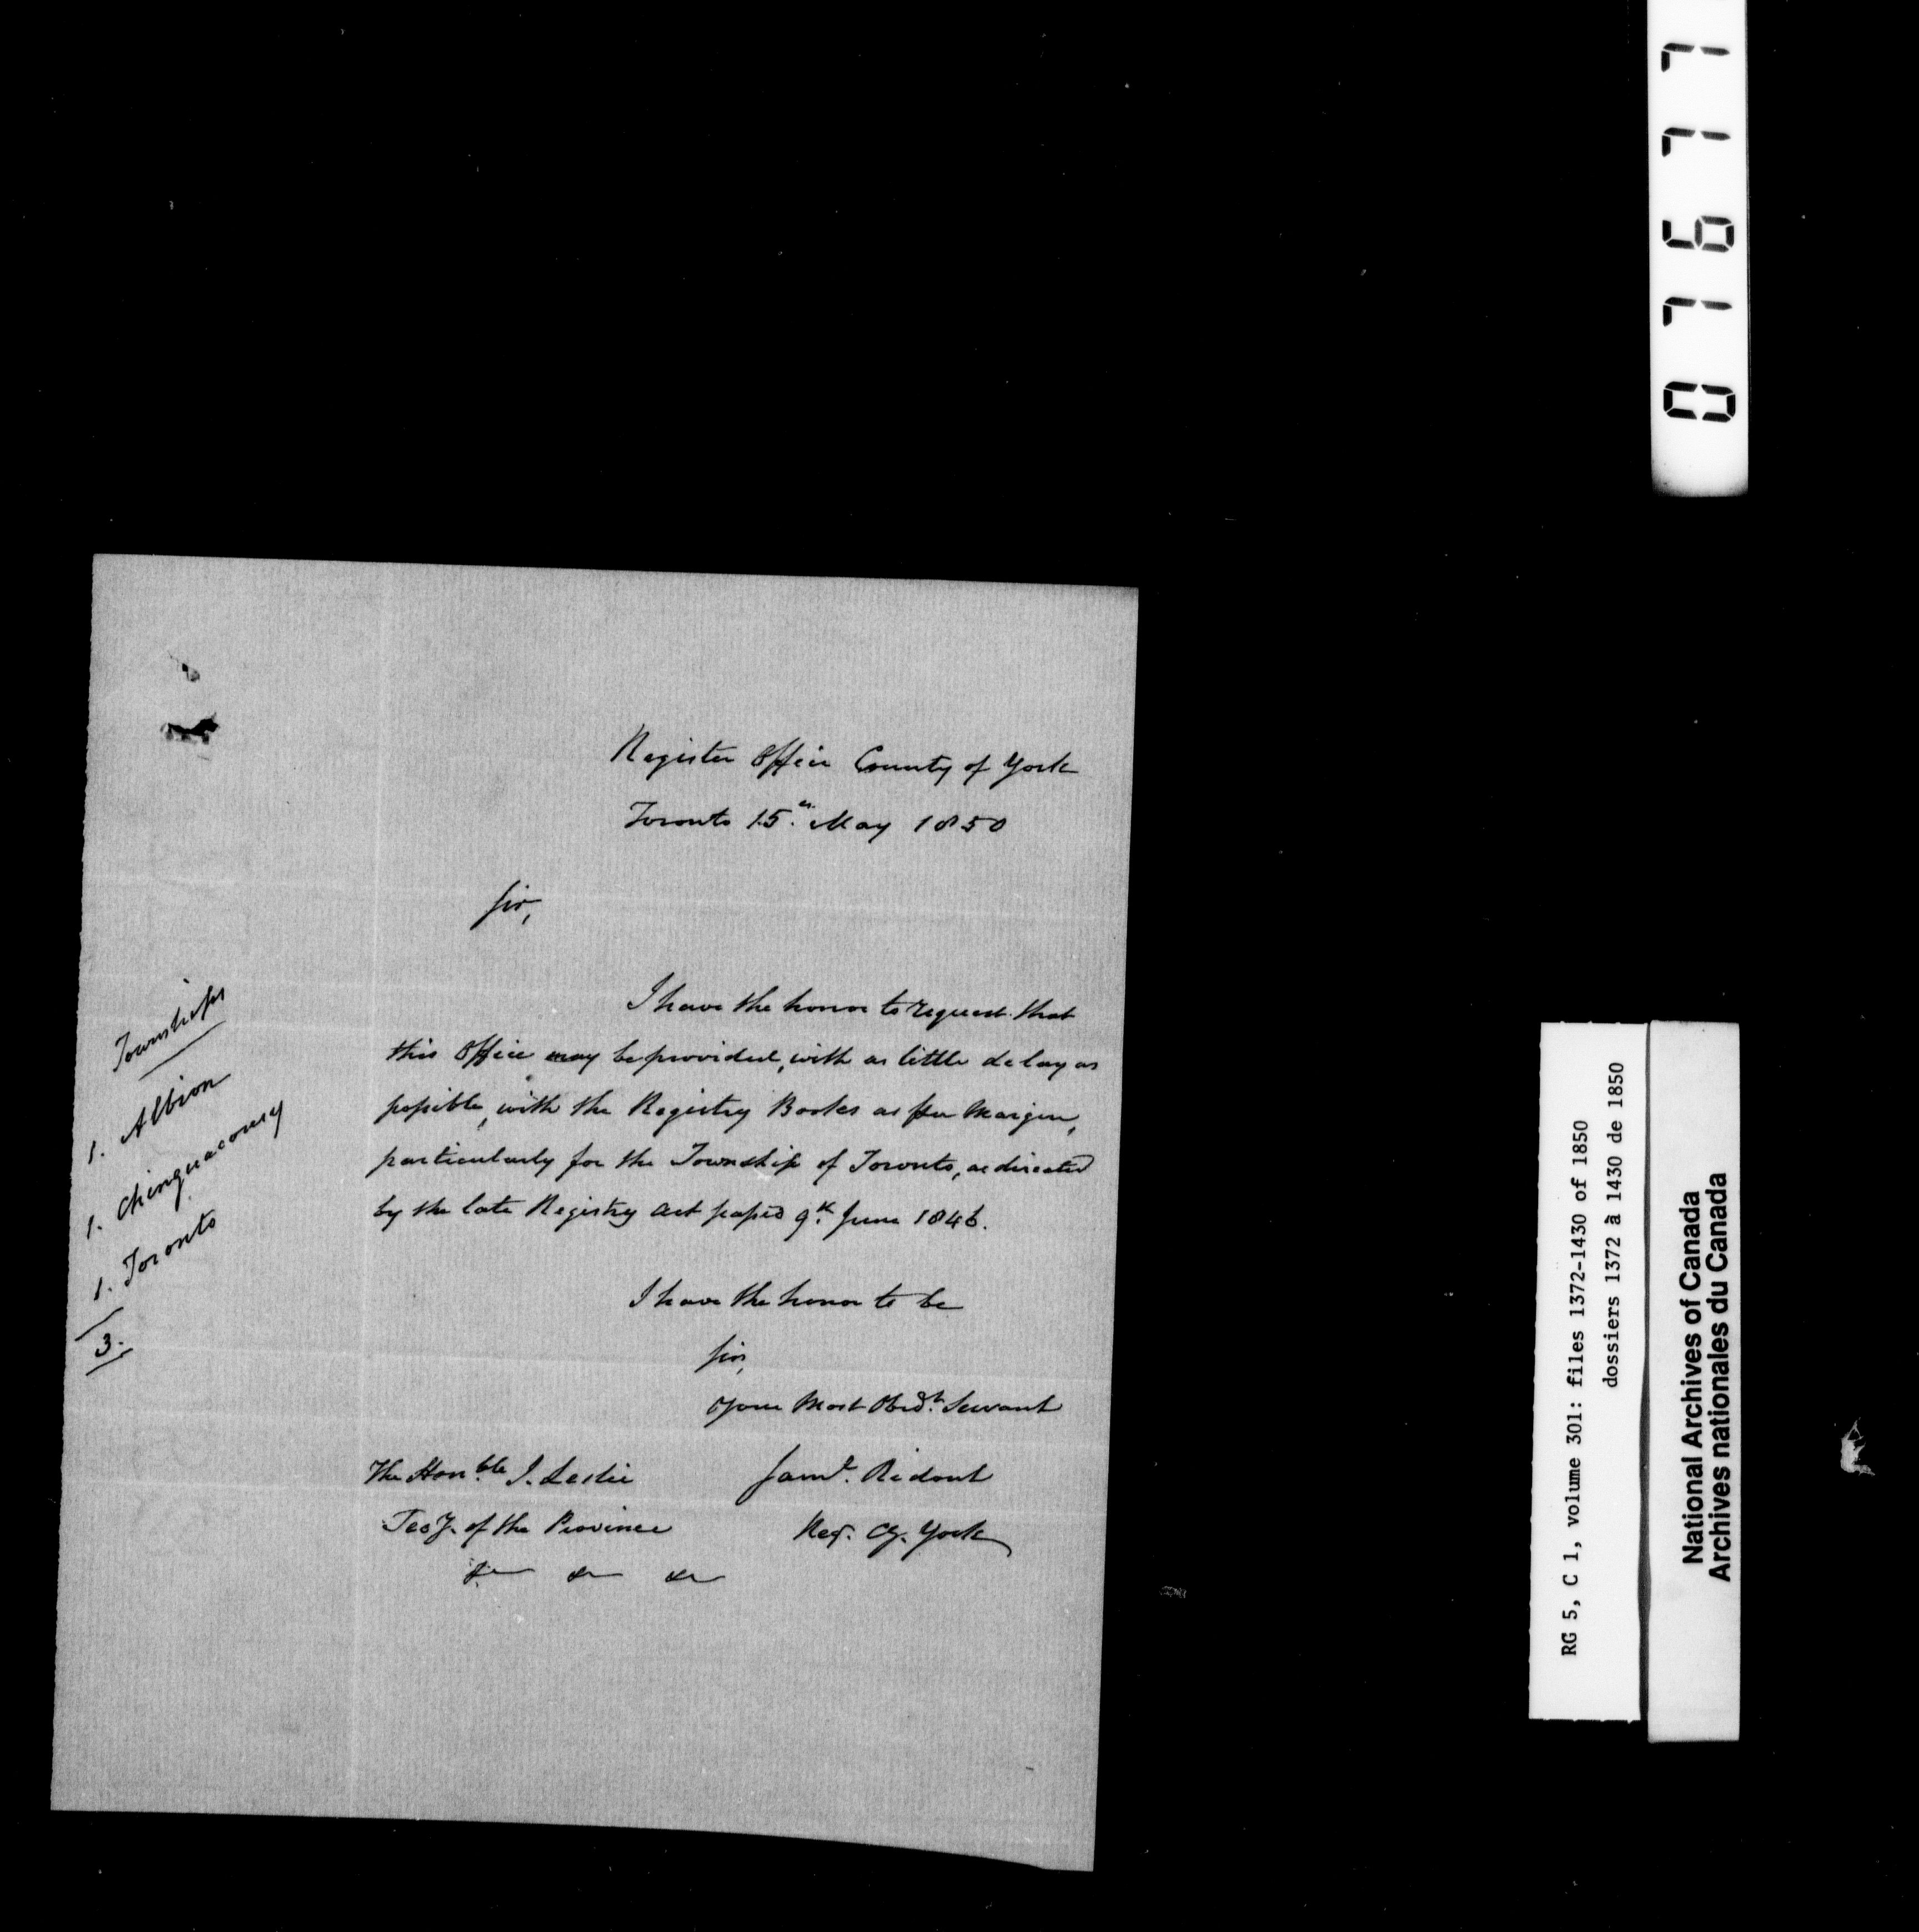 Register Office County of York
Toronto 15th. May 1850
Sir,
I have the honor to request that
this Office may be provided, with as little delay as
possible, with the Registry Books as per Margin,
particularly for the Township of Toronto, as directed
by the late Registry Act passed 9th. June 1846.
I have the honor to be
Sir,
Your Most Obedt. Servant
Saml. Ridout
Reg. Cy. York
The Honble. J. Leslie
Secy. of the Province
&c &c &c
Townships
1. Albion
1. Chinguacousy
1. Toronto
3.
07677
RG 5, C 1, volume 301: files 1372-1430 of 1850
dossiers 1372 à 1430 de 1850
National Archives of Canada
Archives nationales du Canada